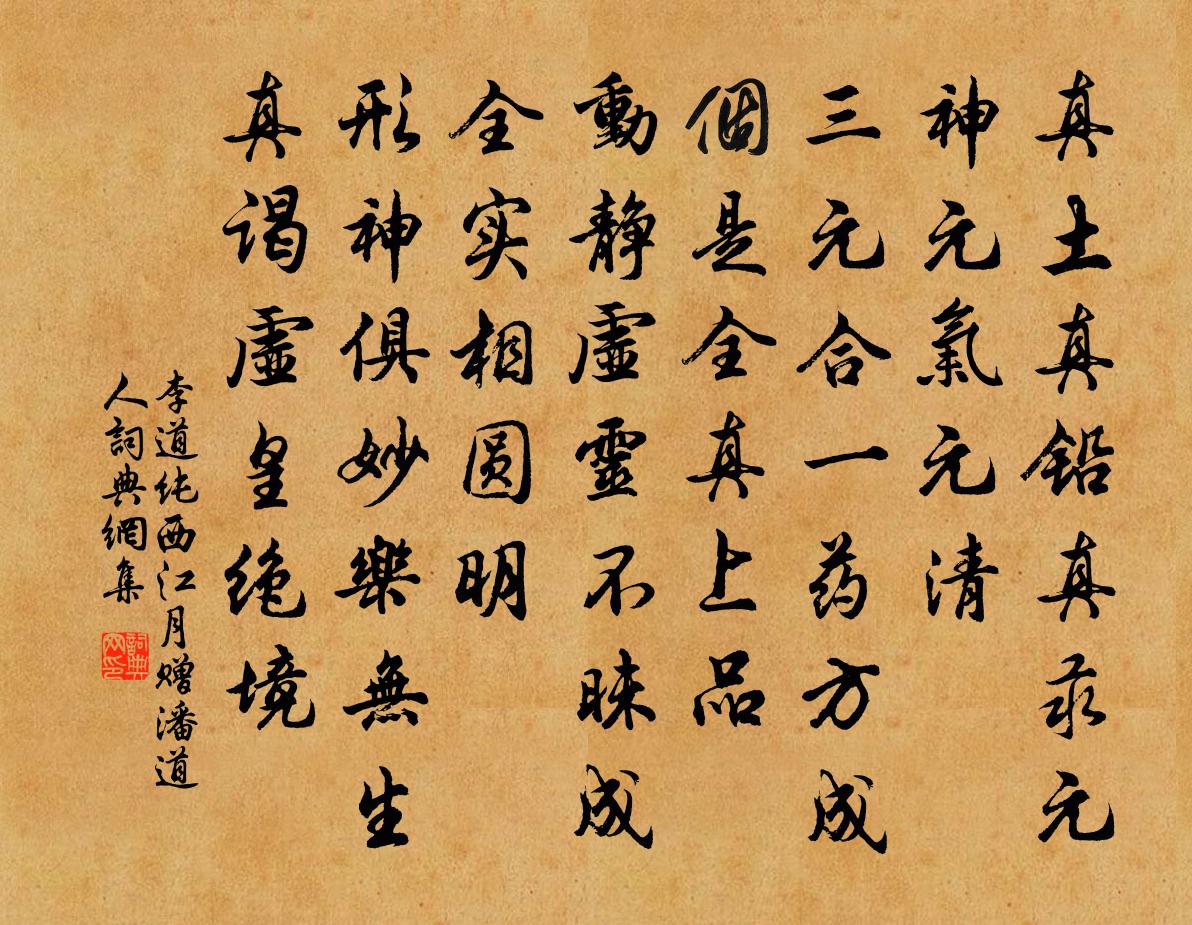 真土真鉛真汞元
神元氣元清
三元合一药方成
個是全真上品
動静虛靈不昧成
全实相圆明
形神俱妙樂無生
真谒虛皇绝境
李道纯西江月赠潘道
人詞典網集
詞典网印